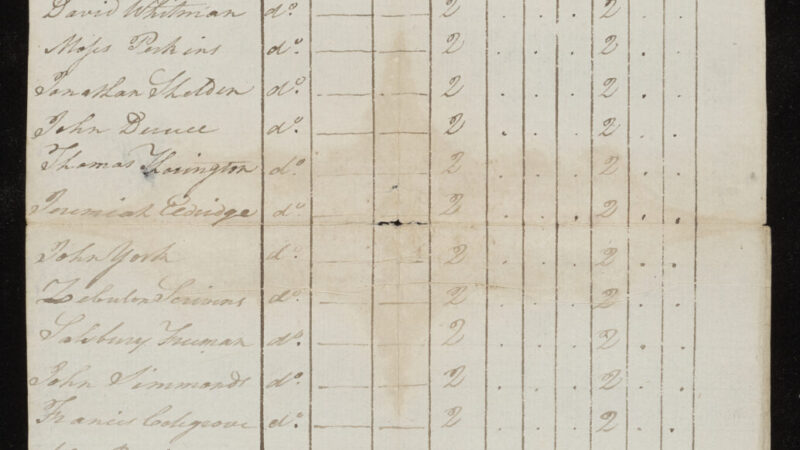 David Whitman do. — — 2 . . . 2 . .
Moses Perkins do. — — 2 . . . 2 . .
Jonathan Shelden do. — — 2 . . . 2 . .
John do. — — 2 . . . 2 . .
Thomas do. — — 2 . . . 2 . .
Jeremiah Eldridge do. — — 2 . . . 2 . .
John York do. — — 2 . . . 2 . .
Zebulon Scrivens do. — — 2 . . . 2 . .
Salsbury Freeman do. — — 2 . . . 2 . .
John Simmonds do. — — 2 . . . 2 . .
Francis Colegrove do. — — 2 . . . 2 . .